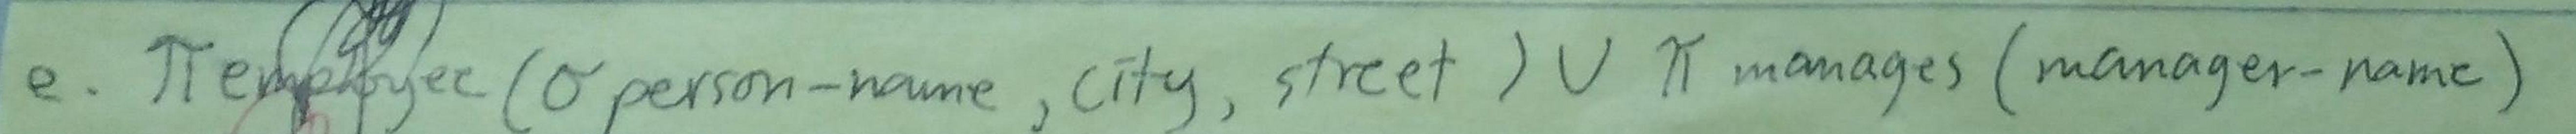 e. π employee (σ person-name, city, street) ∪ π manages (manager-name)